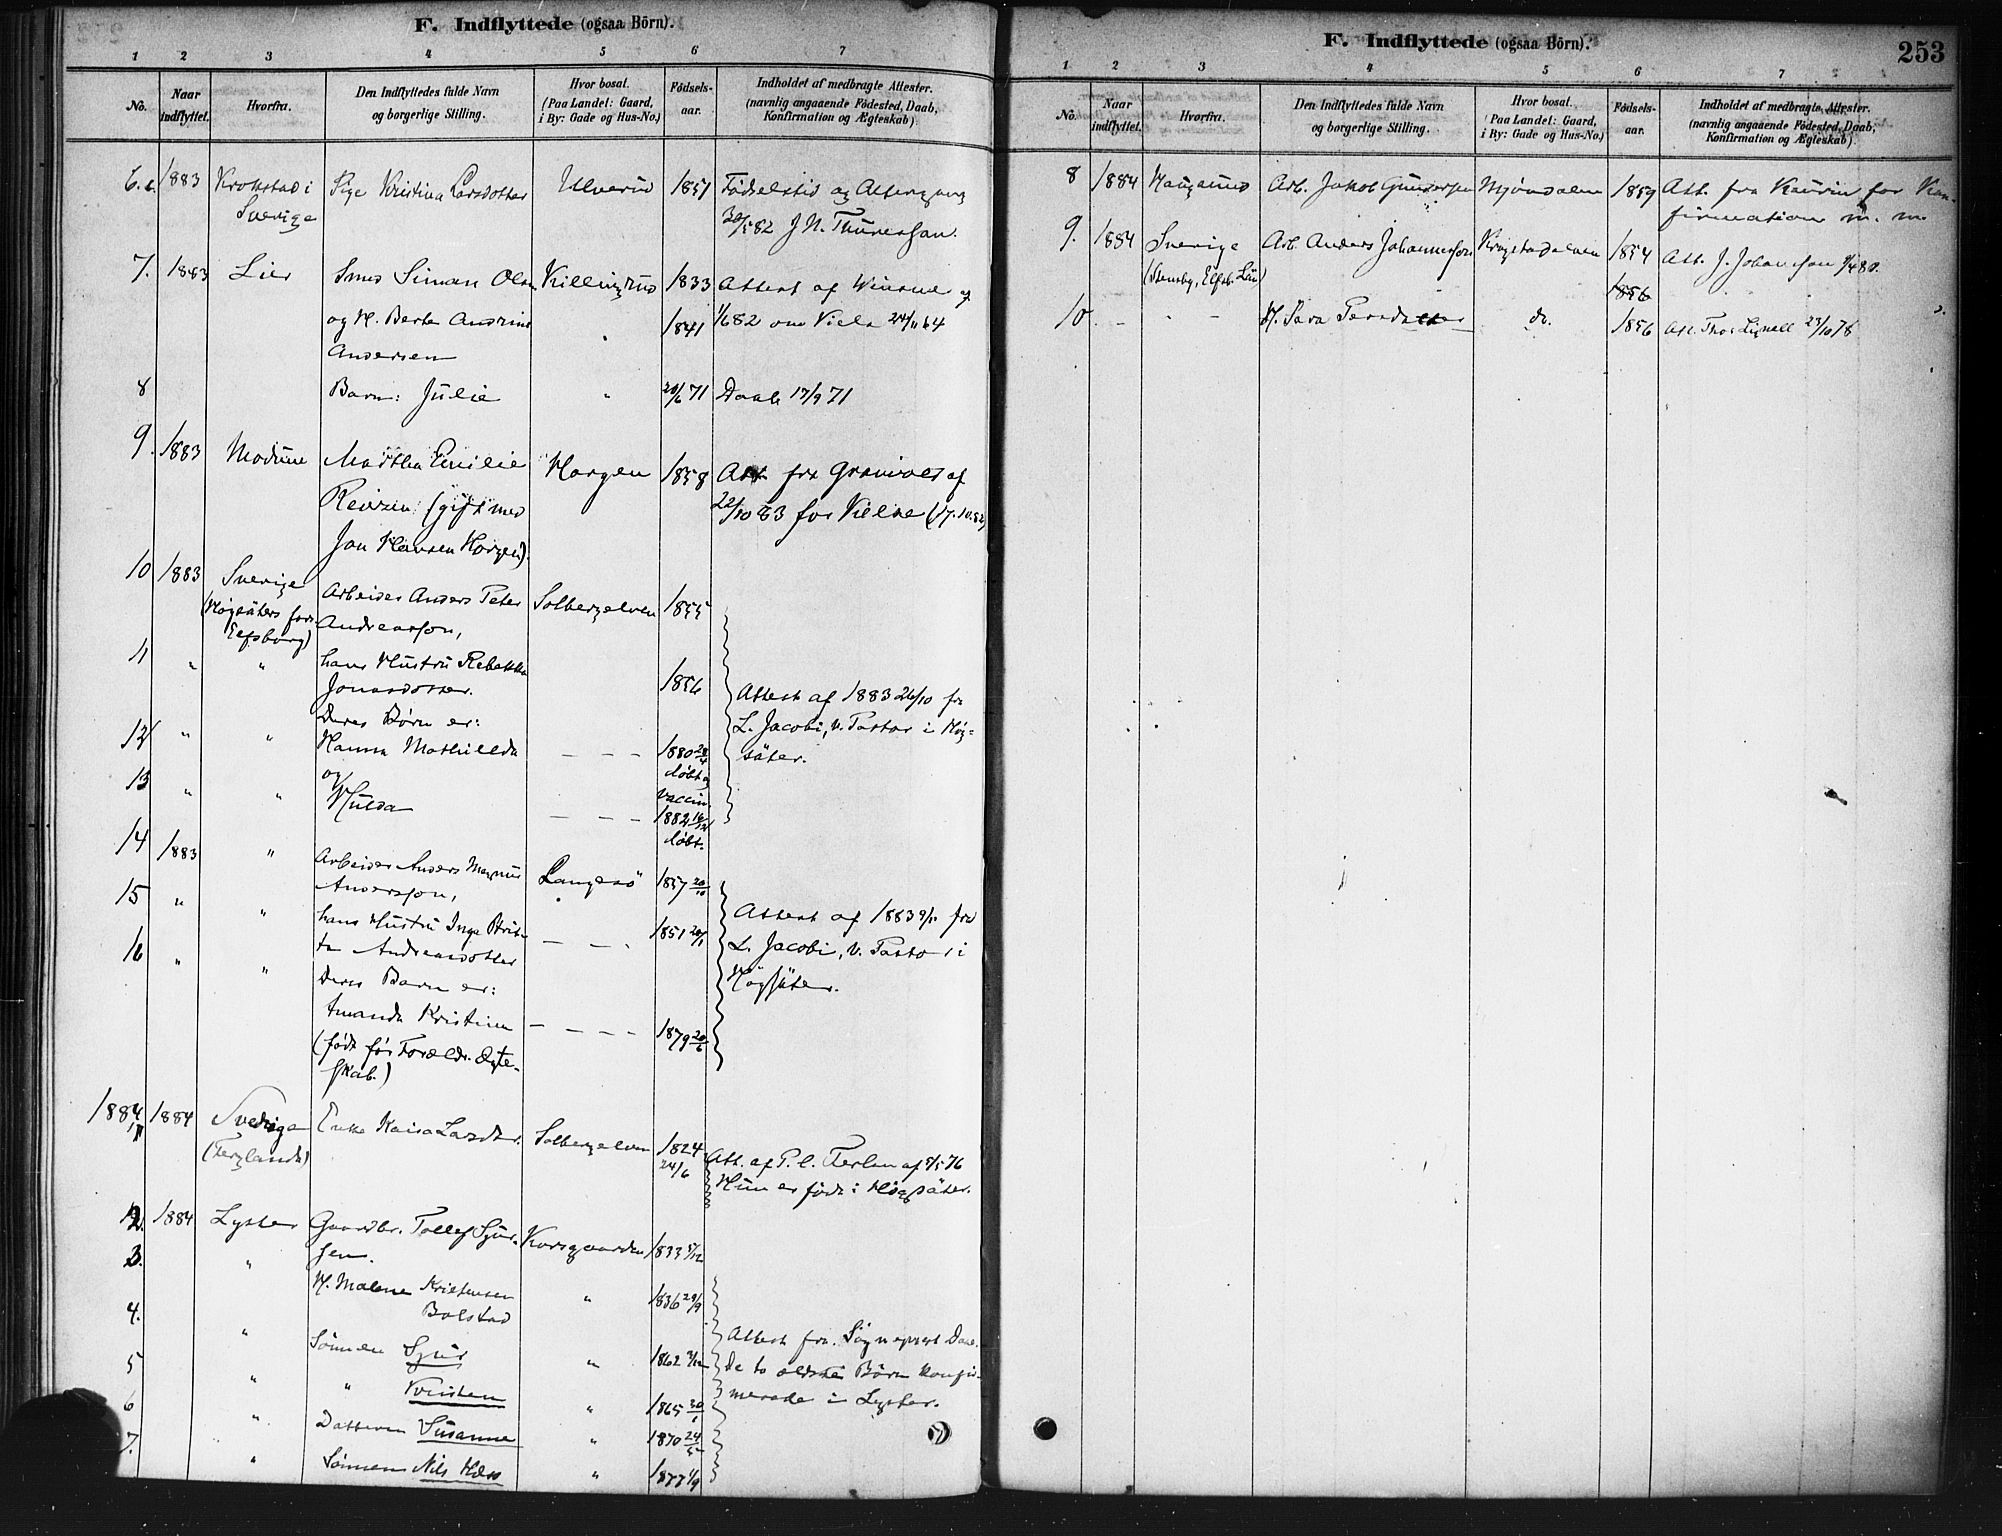 F. Indflyttede (ogsaa Börn).
1 2 3 4 5 6 7
No. Naar indflyttet. Hvorfra. Den Indflyttedes fulde Navn og borgerlige Stilling. Hvor bosat. (Paa Landet: Gaard, i By: Gade og Hus-No.) Födsels-aar. Indholdet af medbragte Attester. (navnlig angaaende Födested, Daab, Konfirmation og Ægteskab).
6. 1883 Krokstad i Pige Kristina Larsdotter Ulverud 1851 Fødselstid og Altergang
Sverige 30/5 82 J. N. Thuresson.
7. 1883 Lier Smed Simon Olsen Killingrud 1833 Attest af
og H. Berte Andrine " 1841 1/6 82 om Vielse 24/11 64
Andersen
8 Barn: Julie " 20/6 71 Daab 17/9 71
9. 1883 Modum Martha Emilie Horgen 1858 Att. fra
(gift med 22/10 83 for Vielse
Jon Hansen Horgen).
10 1883 Sverige Arbeider Anders Peter Solbergelven 1855
(Högsäters
Elfsborg) Andreasson,
11 " " hans Hustru Rebekka 1856
Jonasdotter. Attest af 1883 26/10 fra
Deres Børn er: L. Jacobi, v. Pastor i Hög=
12 " " Hanna Mathilda — — — 1880 28/4 säter.
og døbt og
13 " " Hulda vaccin.
— — — 1882 16/12
døbt.
14 1883 " Arbeider Anders Magnus Langesö 1857 20/10
Andersson,
15 " " hans Hustru Inga Brit- — — . 1851 20/1 Attest af 1883 9/11 fra
ta Andreasdotter L. Jacobi, v. Pastor i
16 " " Deres Barn er: Högsäter.
Amanda Kristina — — — — 1879 20/6
(født før Forældr. Ægte-
skab.)
1884
1 1884 Sverige Enke Kaisa Larsdtr. Solbergelven 1824 24/6 Att. af
Hun er født i Högsäter.
2. 1884 Lyster Gaardbr. Tollef Sjur- Korsgaarden 1833 5/12
sen.
3. " H. Malene Kristensen " 1836 29/9
Bolstad
4. " Sönnen Sjur " 1862 Attest fra Sognepræst
De to ældste Börn konfir-
5 " " Kristen " 1865 30/ merede i Lyster.
6 " Datteren Susanne " 1870 24/5
7. " Sönnen Nils " 1877 1/9
F. Indflyttede (ogsaa Börn).
253
1 2 3 4 5 6 7
No. Naar indflyttet. Hvorfra. Den Indflyttedes fulde Navn og borgerlige Stilling. Hvor bosat. (Paa Landet: Gaard, i By: Gade og Hus-No.) Födsels-aar. Indholdet af medbragte Attester. (navnlig angaaende Födested, Daab, Konfirmation og Ægteskab).
8 1884 Haugesund Arb. Jakob Gundersen Mjöndalen 1859 Att. fra Kaurin for Kon-
firmation m. m.
9. 1884 Sverige Arb. Anders Johannesson Krogstadelven 1854 Att. J. Johansson
1856
10 - - - H. Sara Persdatter do. 1856 Att. Thor Lignell 23/10 78